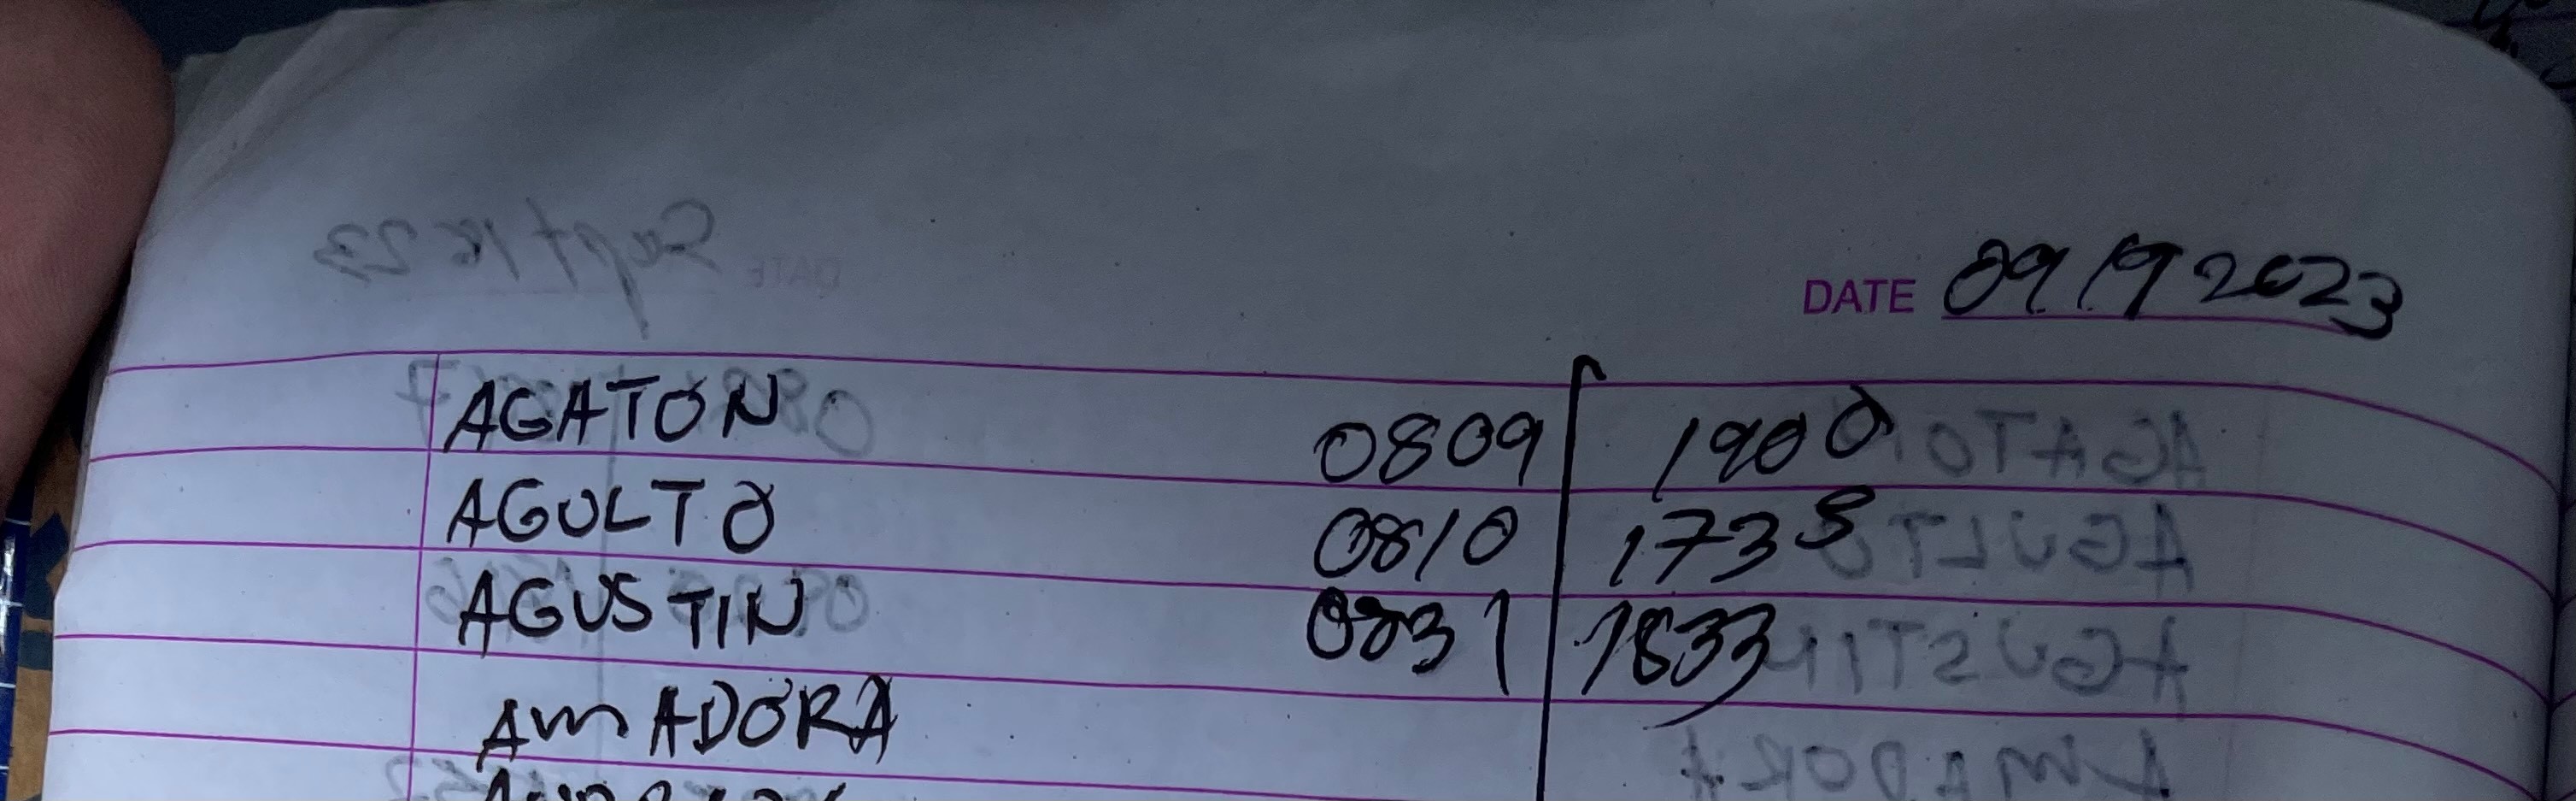 DATE 09/19 2023
AGATON 0809 1900
AGULTO 0810 1738
AGUSTIN 0831 1833
AMADORA